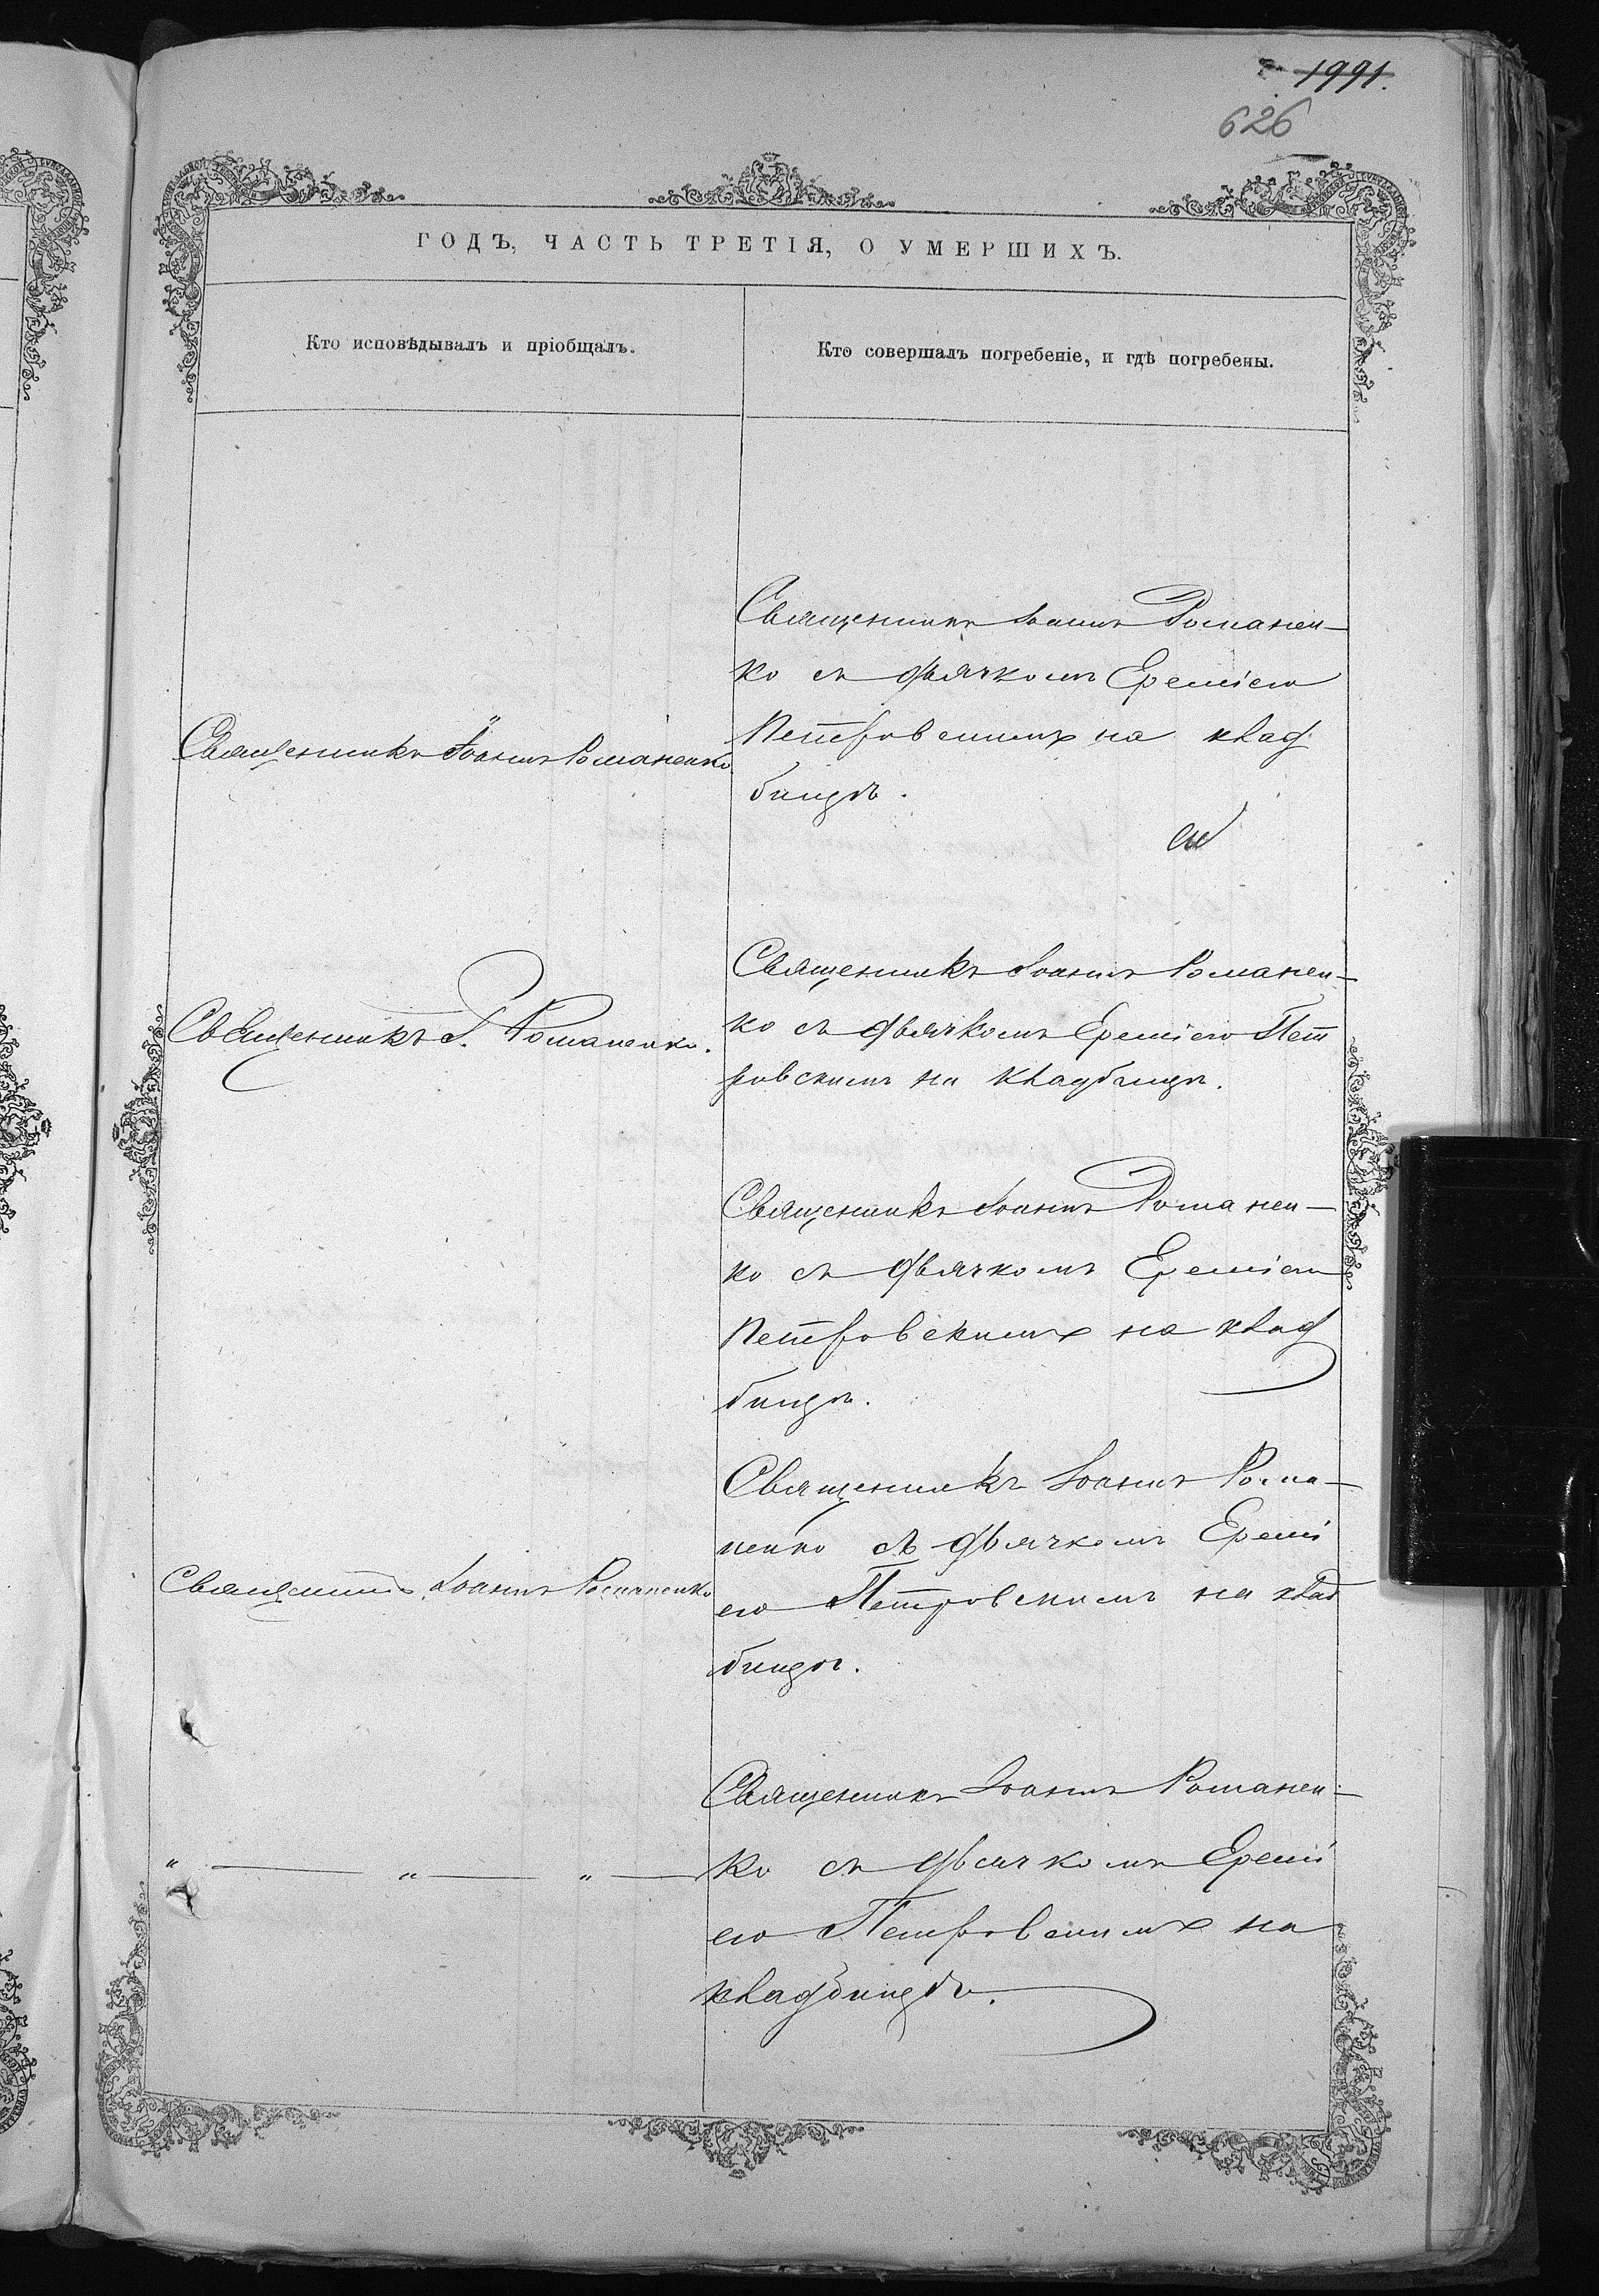 1991.
626
ГОДЪ, ЧАСТЬ ТРЕТІЯ, О УМЕРШИХЪ.
Кто исповѣдывалъ и пріобщалъ.
Кто совершалъ погребеніе, и гдѣ погребены.
Священникъ Іоаннъ Романенко
Священникъ Іоаннъ Романен-
ко съ дьячкомъ Ереміею
Петровскимъ на клад
бищѣ.
Священникъ І. Романенко.
Священникъ Іоаннъ Романен-
ко съ дьячкомъ Ереміею Пет
ровскимъ на кладбищѣ.
Священникъ Іоаннъ Романен-
ко съ дьячкомъ Ереміею
Петровскимъ на клад
бищѣ.
Священникъ Іоаннъ Романенко
Священникъ Іоаннъ Рома-
ненко съ дьячкомъ Еремі
ею Петровскимъ на клад
бищѣ.
" — " — " —
Священникъ Іоаннъ Романен-
ко съ дьячкомъ Еремі
ею Петровскимъ на
кладбищѣ.